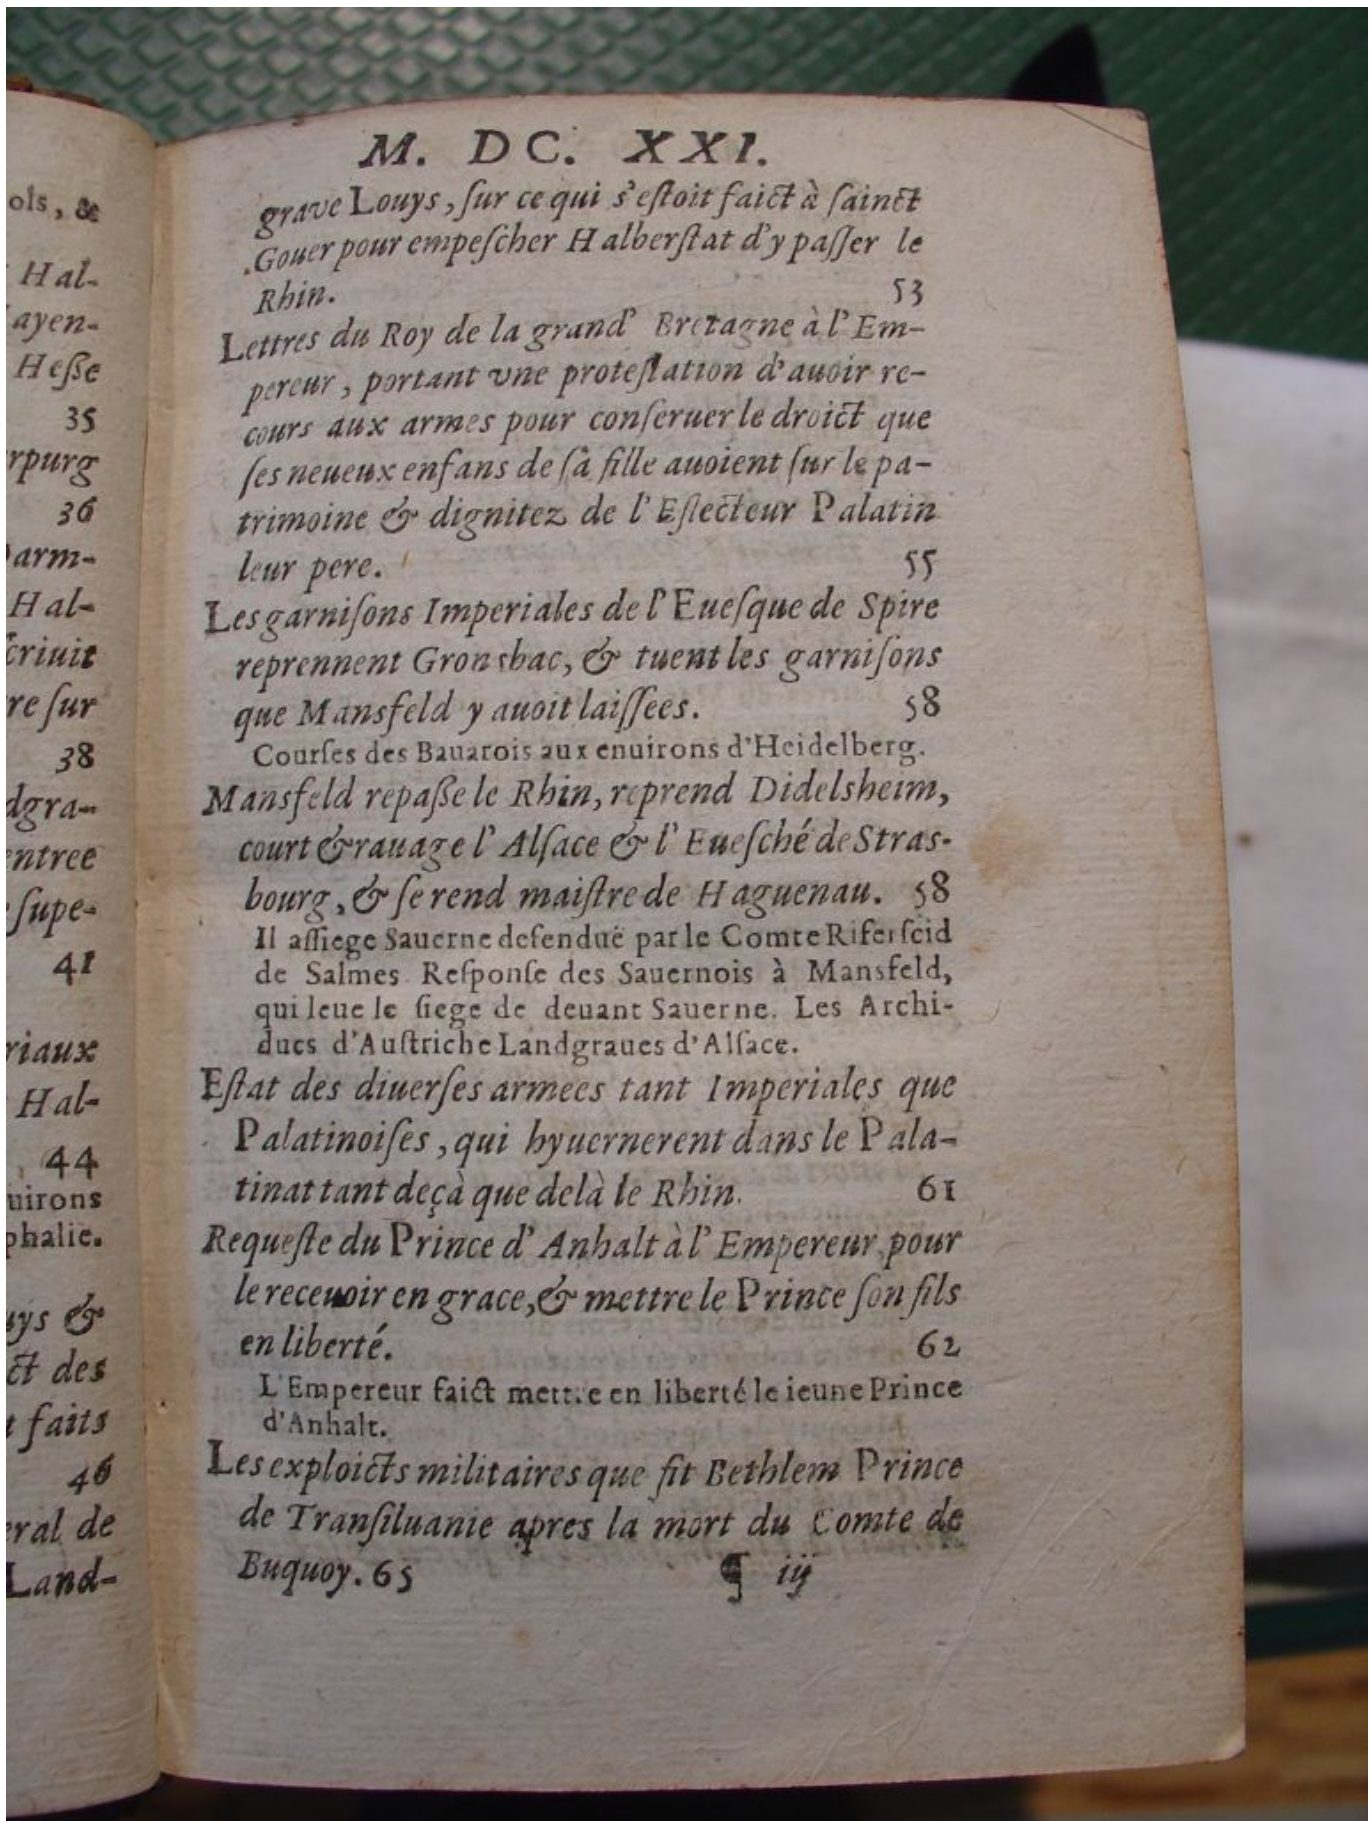 ols, &
Hal-
ayen-
Heſſe
35
rpurg
36
arm-
Hal-
criuit
re ſur
38
dgra-
entree
ſupe-
41
riaux
Hal-
44
uirons
phalie.
uys &
ct des
faits
46
eral de
Land-
M. DC. XXI.
grave Louys, ſur ce qui s'eſtoit faict à ſainct
Gouer pour empeſcher Halberſtat d'y paſſer le
Rhin. 53
Lettres du Roy de la grand' Bretagne à l'Em-
pereur, portant vne proteſtation d'auoir re-
cours aux armes pour conſeruer le droict que
ſes neueux enfans de ſa fille auoient ſur le pa-
trimoine & dignitez de l'Eſlecteur Palatin
leur pere. 55
Les garniſons Imperiales de l'Eueſque de Spire
reprennent Gronsbac, & tuent les garniſons
que Mansfeld y auoit laiſſees. 58
Courſes des Bauarois aux enuirons d'Heidelberg.
Mansfeld repaſſe le Rhin, reprend Didelsheim,
court & rauage l'Alſace & l'Eueſché de Stras-
bourg, & ſe rend maiſtre de Haguenau. 58
Il aſſiege Sauerne defenduë par le Comte Riferſcid
de Salmes. Reſponſe des Sauernois à Mansfeld,
qui leue le ſiege de deuant Sauerne. Les Archi-
ducs d'Auſtriche Landgraues d'Alſace.
Eſtat des diuerſes armees tant Imperiales que
Palatinoiſes, qui hyuernerent dans le Pala-
tinat tant deçà que delà le Rhin. 61
Requeſte du Prince d'Anhalt à l'Empereur, pour
le receuoir en grace, & mettre le Prince ſon fils
en liberté. 62
L'Empereur faict mettre en liberté le ieune Prince
d'Anhalt.
Les exploicts militaires que fit Bethlem Prince
de Tranſiluanie apres la mort du Comte de
Buquoy. 65 ¶ iij